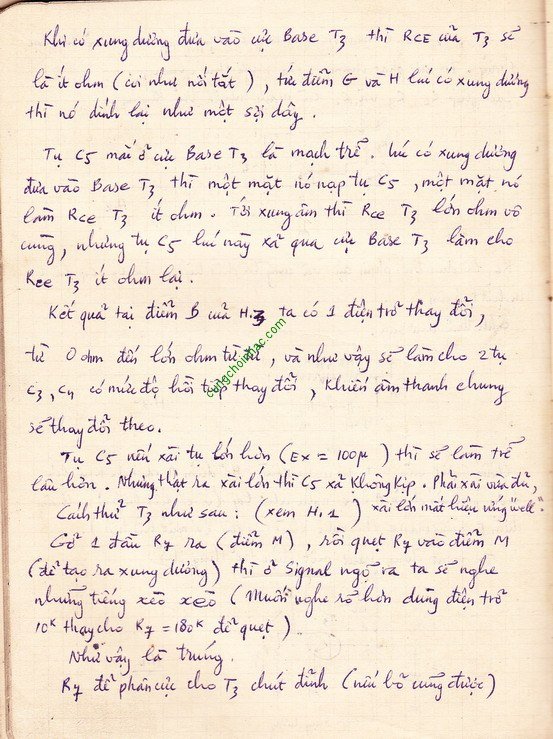 Khi có xung dương đưa vào cực Base T3 thì RCE của T3 sẽ
là ít ohm (coi như nối tắt), tức điểm G và H lúc có xung dương
thì nó dính lại như một sợi dây.
Tụ C5 mắc ở cực Base T3 là mạch trễ. Lúc có xung dương
đưa vào Base T3 thì một mặt nó nạp tụ C5, một mặt nó
làm RCE T3 ít ohm. Tới xung âm thì RCE T3 lớn ohm vô
cùng, nhưng tụ C5 lúc này xả qua cực Base T3 làm cho
RCE T3 ít ohm lại.
Kết quả tại điểm B của H.3 ta có 1 điện trở thay đổi,
từ 0 ohm đến lớn ohm từ từ, và như vậy sẽ làm cho 2 tụ
C3, C4 có mức độ hồi tiếp thay đổi, khiến âm thanh chung
sẽ thay đổi theo.
Tụ C5 nếu xài tụ lớn hơn (Ex = 100µ) thì sẽ làm trễ
lâu hơn. Nhưng thật ra xài lớn thì C5 xả không kịp. Phải xài vừa đủ,
xài lớn mất hiệu ứng "well".
Cách thử T3 như sau: (xem H.1)
Gỡ 1 đầu R7 ra (điểm M), rồi quẹt R7 vào điểm M
(để tạo ra xung dương) thì ở Signal ngõ ra ta sẽ nghe
những tiếng xẹo xẹo (Muốn nghe rõ hơn dùng điện trở
10K thay cho R7 = 180K để quẹt).
Như vậy là trúng.
R7 để phân cực cho T3 chút đỉnh (nếu bỏ cũng được)
cungchoinhac.com